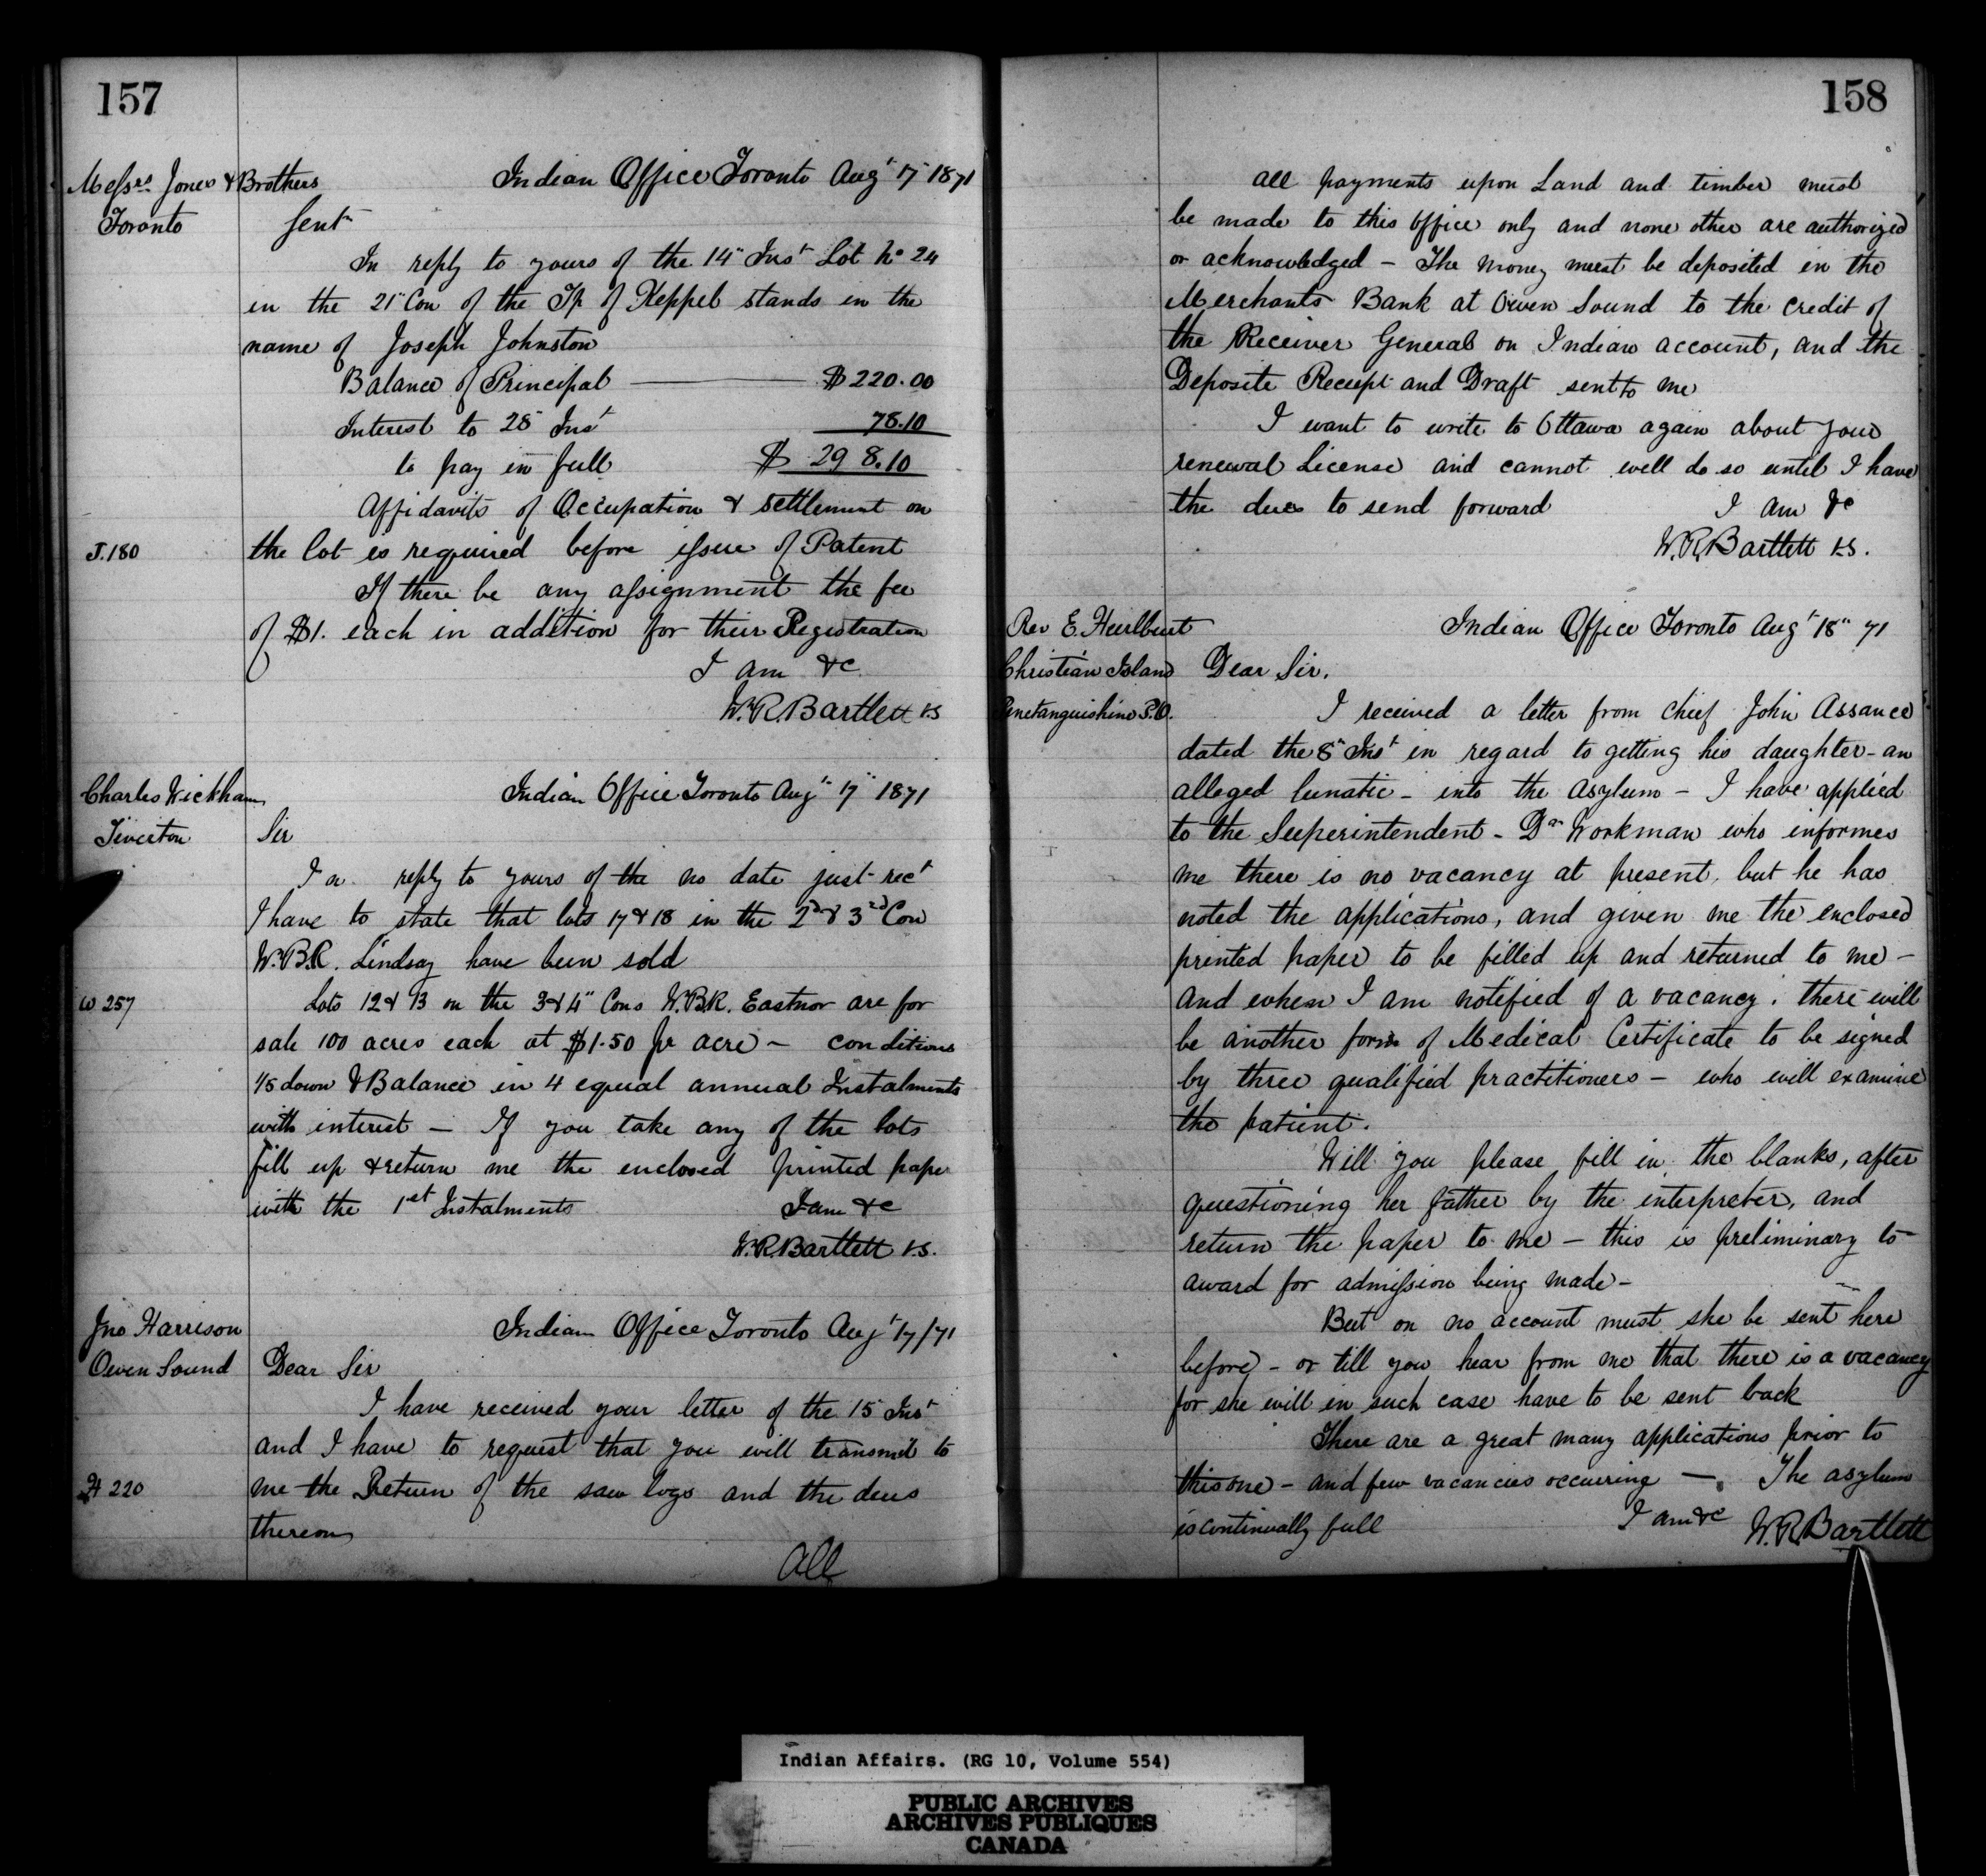 157
Messrs. Jones & Brothers
Toronto
Indian Office Toronto Augt 17" 1871
Gent
In reply to yours of the 14" Inst Lot No 24
in the 21" Con of the Tp of Keppel stands in the
name of Joseph Johnston
Balance of Principal — $220.00
Interest to 28" Inst 78.10
to pay in full $298.10
Affidavits of Occupation & settlement on
J.180
the lot is required before issue of Patent
If there be any assignment the fee
of $1. each in addition for their Registration
I am &c
W.R. Bartlett V.S
Charles Wickham
Tiverton
Indian Office Toronto Augt 17" 1871
Sir
In reply to yours of the no date just rect
I have to state that lots 17 & 18 in the 2d & 3rd Con
W.B.R. Lindsay have been sold
W 257
Lots 12 & 13 on the 3 & 4" Cons W.B.R. Eastnor are for
sale 100 acres each at $1.50 pr acre – conditions
1/5 down & Balance in 4 equal annual Instalments
with interest – If you take any of the lots
fill up & return me the enclosed printed paper
with the 1st Instalments I am &c
W.R. Bartlett V.S.
Jno Harrison
Owen Sound
Indian Office Toronto Augt 17/71
Dear Sir
I have received your letter of the 15 Inst
and I have to request that you will transmit to
H 220
me the Return of the saw logs and the dues
thereon
All
158
All payments upon Land and timber must
be made to this office only and none other are authorized
or acknowledged – The money must be deposited in the
Merchants Bank at Owen Sound to the credit of
the Receiver General on Indian account, and the
Deposite Receipt and Draft sent to me
I want to write to Ottawa again about your
renewal License and cannot well do so until I have
the dues to send forward I am &c
W.R. Bartlett V.S.
Rev E. Hurlburt
Christian Island
Penetanguishine P.O.
Indian Office Toronto Augt 18" 71
Dear Sir.
I received a letter from Chief John Assance
dated the 8" Inst in regard to getting his daughter – an
alleged lunatic – into the Asylum – I have applied
to the Superintendent – Dr Workman who informes
me there is no vacancy at present, but he has
noted the applications, and given me the enclosed
printed paper to be filled up and returned to me –
and when I am notified of a vacancy, there will
be another form of Medical Certificate to be signed
by three qualified practitioners – who will examine
the patient.
Will you please fill in the blanks, after
questioning her father by the interpreter, and
return the paper to me – this is preliminary to
award for admission being made –
But on no account must she be sent here
before – or till you hear from me that there is a vacancy
for she will in such case have to be sent back
There are a great many applications prior to
this one – and few vacancies occuring –. The asylum
is continually full I am &c W.R. Bartlett
Indian Affairs. (RG 10, Volume 554)
PUBLIC ARCHIVES
ARCHIVES PUBLIQUES
CANADA